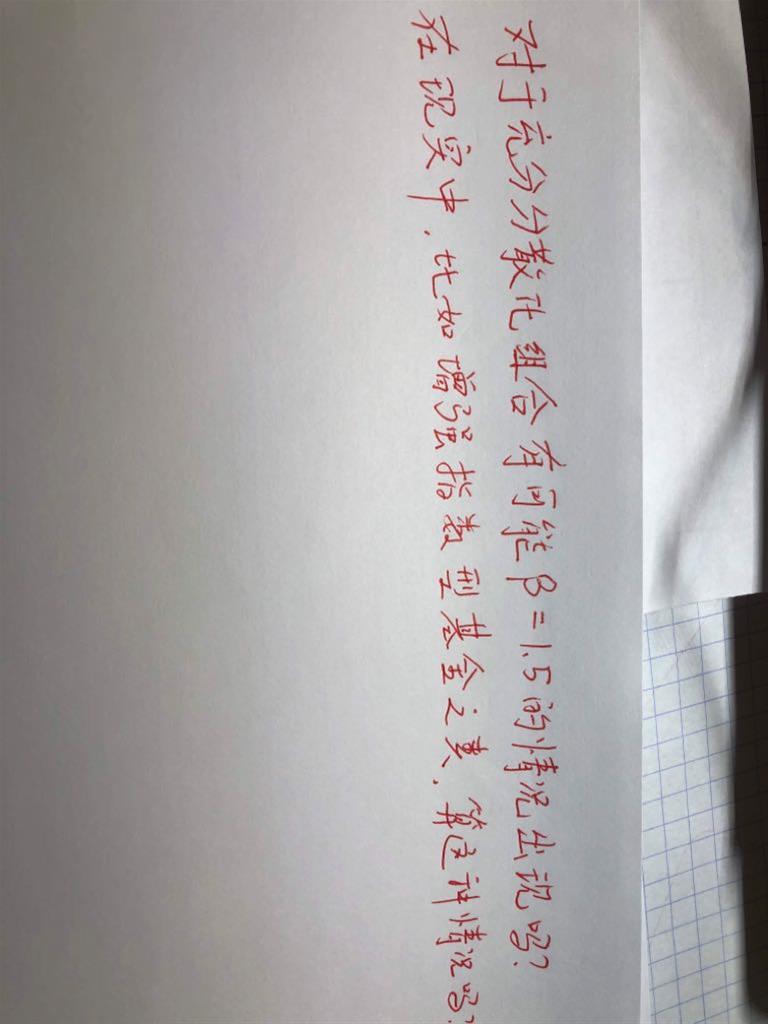 对于充分分散化组合有可能β=1.5的情况出现吗?
在现实中,比如增强指数型基金之类,算这种情况吗?